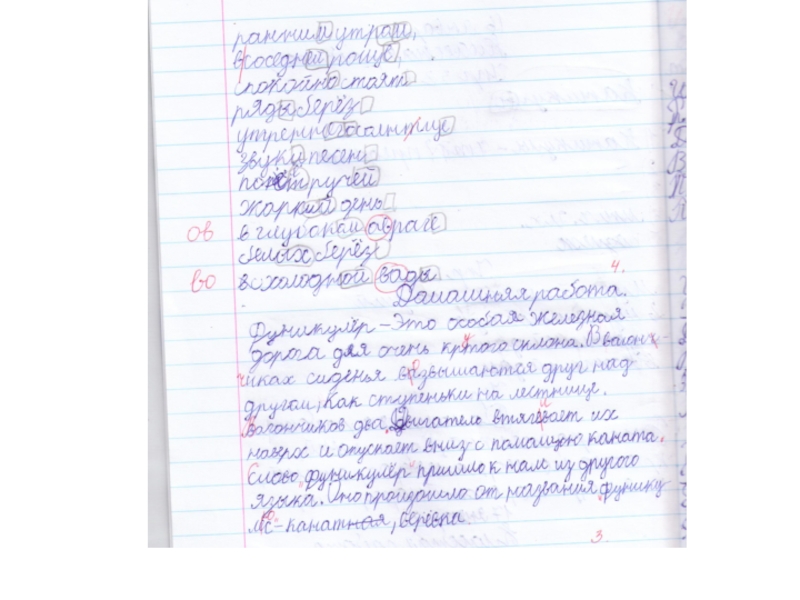 ранним утром,
в соседней роще,
спокойно стоят
ряды берёз
утреннего солнтце
звуки песен
поют ручей
жаркий день
ов в глубоком авраге
белых берёз
во всхолодной вады
4.
Домашняя работа.
Фуникулёр – это особая железная
дорога для очень крутого склона. В вагон-
чиках сиденья возвышаются друг над
другом, как ступеньки на лестнице.
Вагончиков два. Двигатель втягивает их
наверх и опускает вниз с помащью каната.
Слово фуникулёр пришло к нам из другого
языка. Оно произошло от названия фунику
- канатная, верёвка.
3.